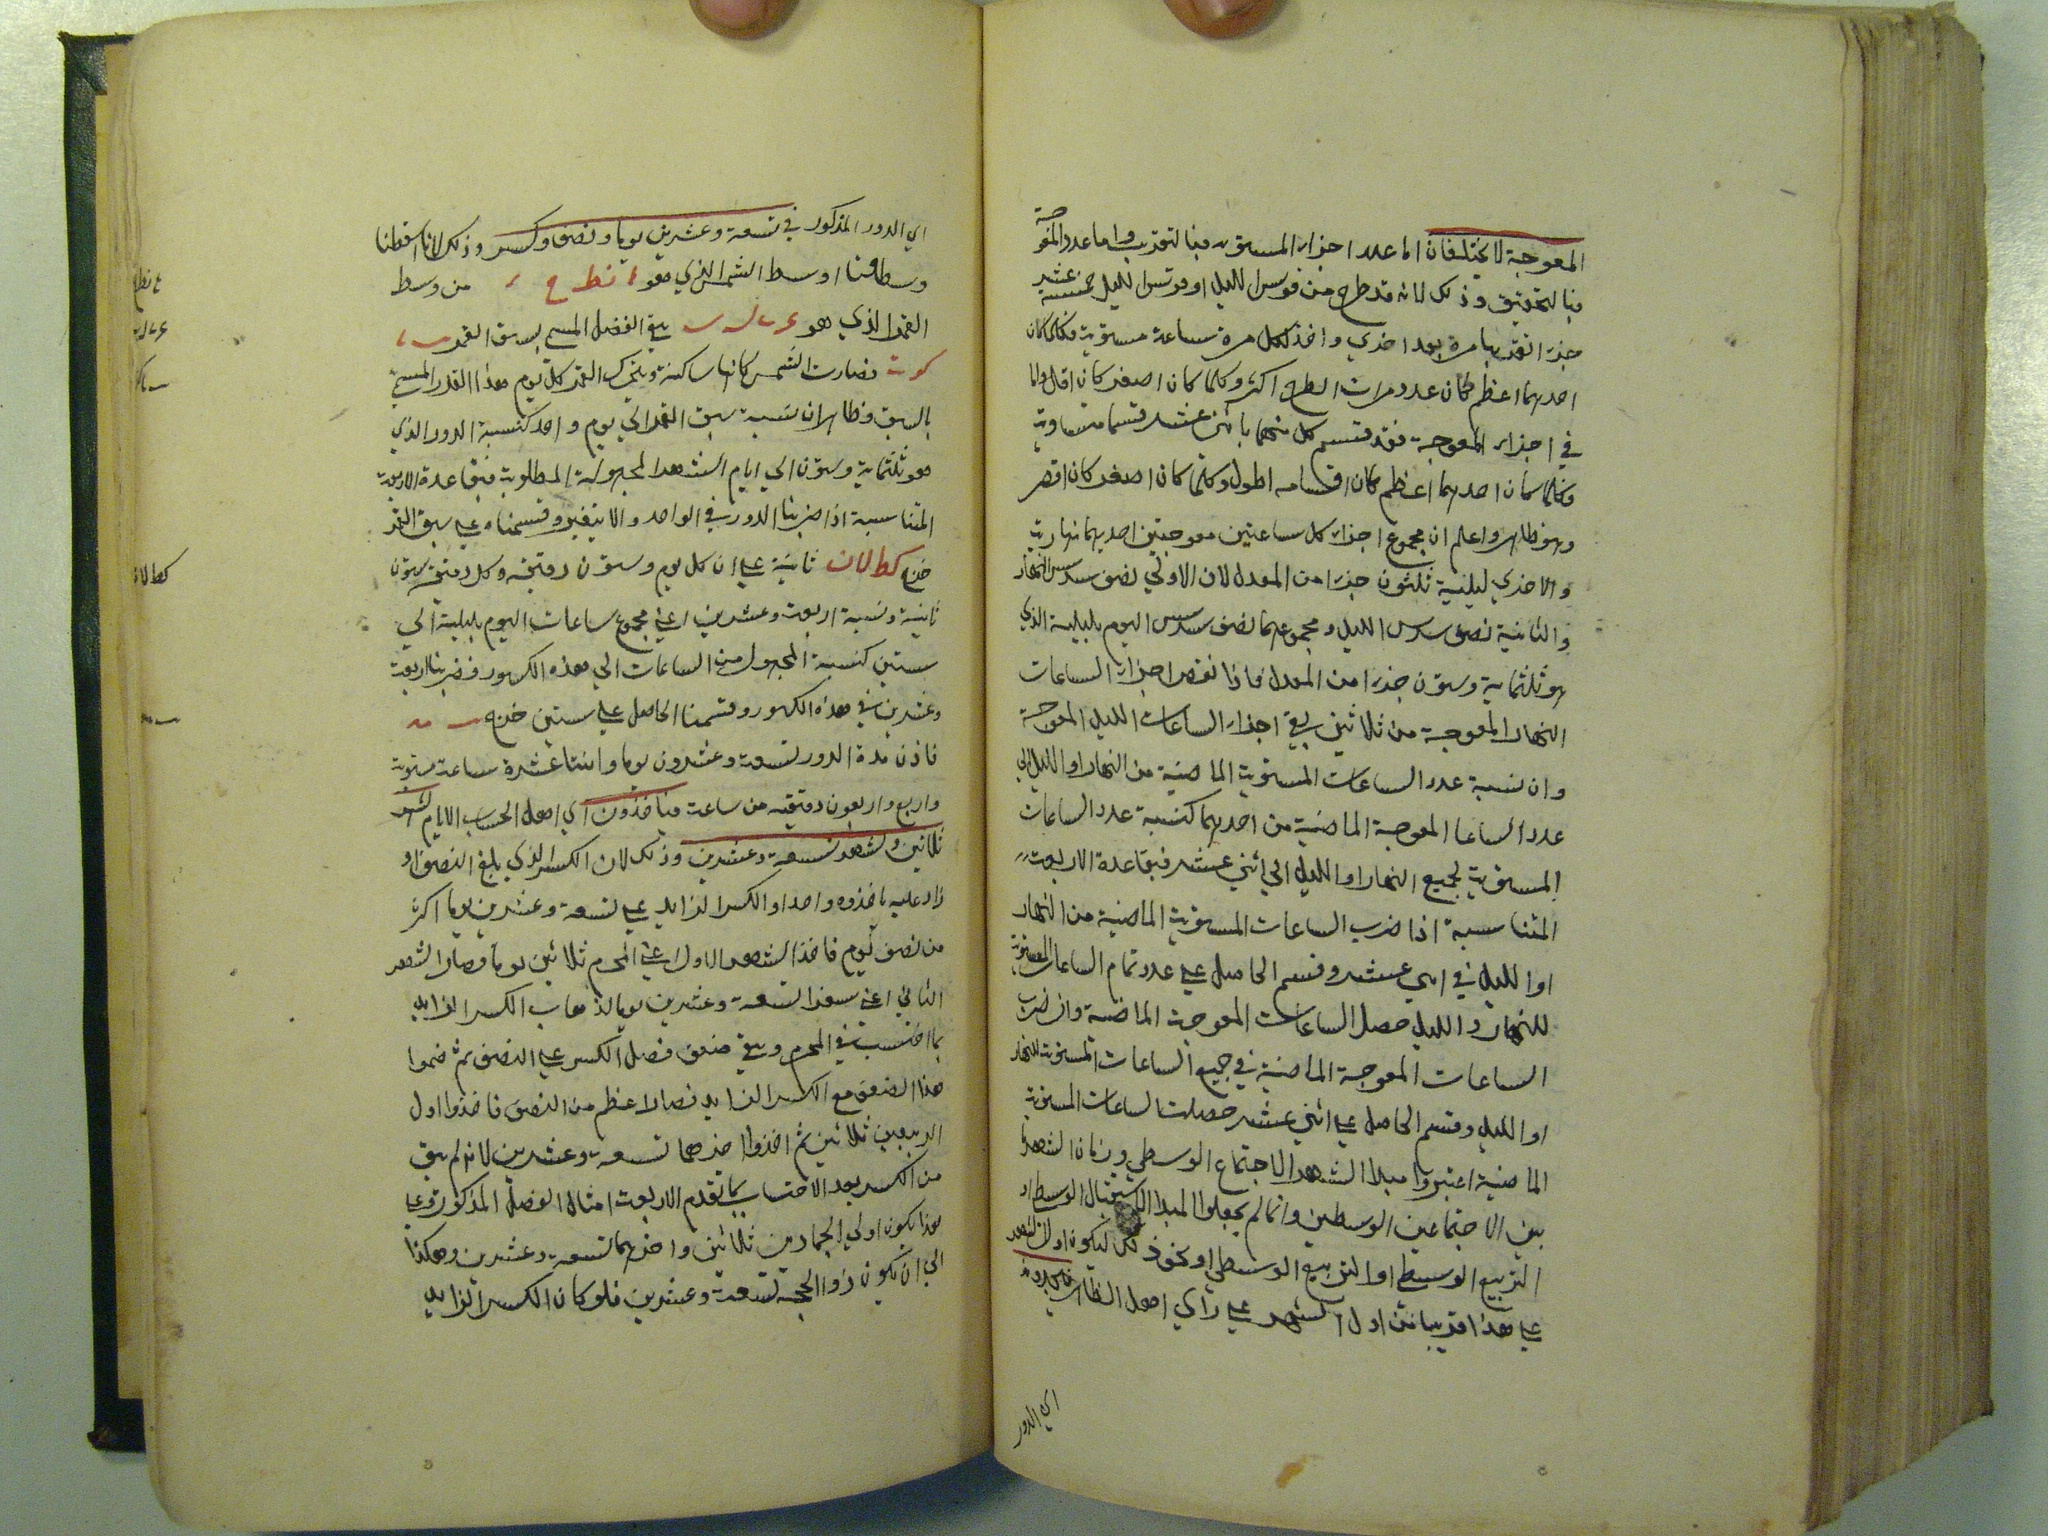 المعوجة لا يختلفان اما عدد اجزاء المستوية فبالتقريب واما عدد المعوجة
فبالتحقيق وذلك لانه قد طرح من قوس الليل او قوس الليل خمسة عشر
جزءا تقريبا مرة بعد اخري واخذ لكل مرة ساعة مستوية فكلما كان
احدهما اعظم كان عدد مرات الطرح اكثر وكلما كان اصغر كان اقل واما
في اجزاء المعوجة فقد قسم كل منهما باثني عشر قسما متساوية
فكلما كان احدهما اعظم كان اقسامه اطول وكلما كان اصغر كان اقصر
وهو ظاهر واعلم ان مجموع اجزاء كل ساعتين معوجتين احديهما نهارية
والاخري ليلية ثلثون جزءا من المعدل لان الاولي نصف سدس النهار
والثانية نصف سدس الليل ومجموعهما نصف سدس اليوم بليلية الذي
هو ثلثماية وستون جزءا من المعدل فاذا نقص اجزاء الساعات
النهار المعوجة من ثلاثين بقي اجزاء الساعات الليل المعوجة
وان نسبة عدد الساعات المستوية الماضية من النهار او الليل الي
عدد الساعا المعوجة الماضية من احديهما كنسبة عدد الساعات
المستوية لجميع النهار او الليل الي اثني عشر فبقاعدة الاربعة
المتناسبة اذا ضرب الساعات المستوية الماضية من النهار
او الليل في اثني عشر وقسم الحاصل علي عدد تمام الساعات المستوية
للنهار والليل حصل الساعات المعوجة الماضية وان ضرب
الساعات المعوجة الماضية في جميع الساعات المستوية للنهار
او الليل وقسم الحاصل علي اثني عشر حصلت الساعات المستوية
الماضية اعتبروا مبدا الشهر الاجتماع الوسطي وزمان الشهر ما
بين الاجتماعين الوسطين وانما لم يجعلوا المبدا الاستقبال الوسط او
التربيع الوسط او التربيع الوسطي او نحو ذلك ليكون اول الشهر
علي هذا قريبا من اول الشهر علي راي اهل الظاهر
اي الدور
اي الدور المذكور في تسعة وعشرين يوما ونصف وكسر وذلك لانا اسقطنا
وسطا وسط الشمس الذي هو نط ح من وسط
القمر الذي هو بقي الفضل المسمي بسبق القمر
فصارت الشمس كانها ساكنة ويتحرك القمر كل يوم هذا القدر المسمي
بالسبق فظاهر ان نسبة سبق القمر الي يوم واحد كنسبة الدور الذي
هو ثلثماية وستون الي ايام الشهر المجهولة المطلوبة فبقاعدة الاربعة
المتناسبة اذا ضربنا الدور في الواحد والا يتغير وقسمناه علي سبق القمر
خرج كط لان ثانية علي ان كل يوم وستون دقيقة وكل دقيقة ستون
ثانية ونسبة اربعة وعشرين اعني مجموع ساعات اليوم بليلية الي
ستين كنسبة المجهول من الساعات الي هذه الكسور فضربنا اربعة
وعشرين في هذه الكسور وقسمنا الحاصل علي ستين خرج
فاذن مدة الدور تسعة وعشرون يوما واثنتا عشرة ساعة مستوية
واربع واربعون دقيقه من ساعة فياخذون اي اهل الحساب الايام لشهر
ثلاثين ولشهر تسعة وعشرين وذلك لان الكسر الذي بلغ النصف او
زاد عليه ياخذوه واحدا والكسر الزايد علي تسعة وعشرين يوما اكثر
من نصف يوم فاخذ الشهر الاول اعني المحرم ثلاثين يوما فصار الشهر
الثاني اعني سفر تسعة وعشرين يوما لذهاب الكسر الزايد
بما احتسب في المحرم وبقي ضعف فضل الكسر علي النصف ثم ضموا
هذا الضعف مع الكسر الزايد فصار اعظم من النصف فاخذوا اول
الربيعين ثلاثين ثم اخذوا اخرهما تسعة وعشرين لانه لم يبق
من الكسر بعد الاحتساب بما تقدم الا اربعة امثال الفضل المذكور وعلي
هذا يكون اولي الجمادين ثلاثين واخريهما تسعة وعشرين وهكذا
الي ان يكون ذو الحجة تسعة وعشرين فلو كان الكسر الزايد
كط لان